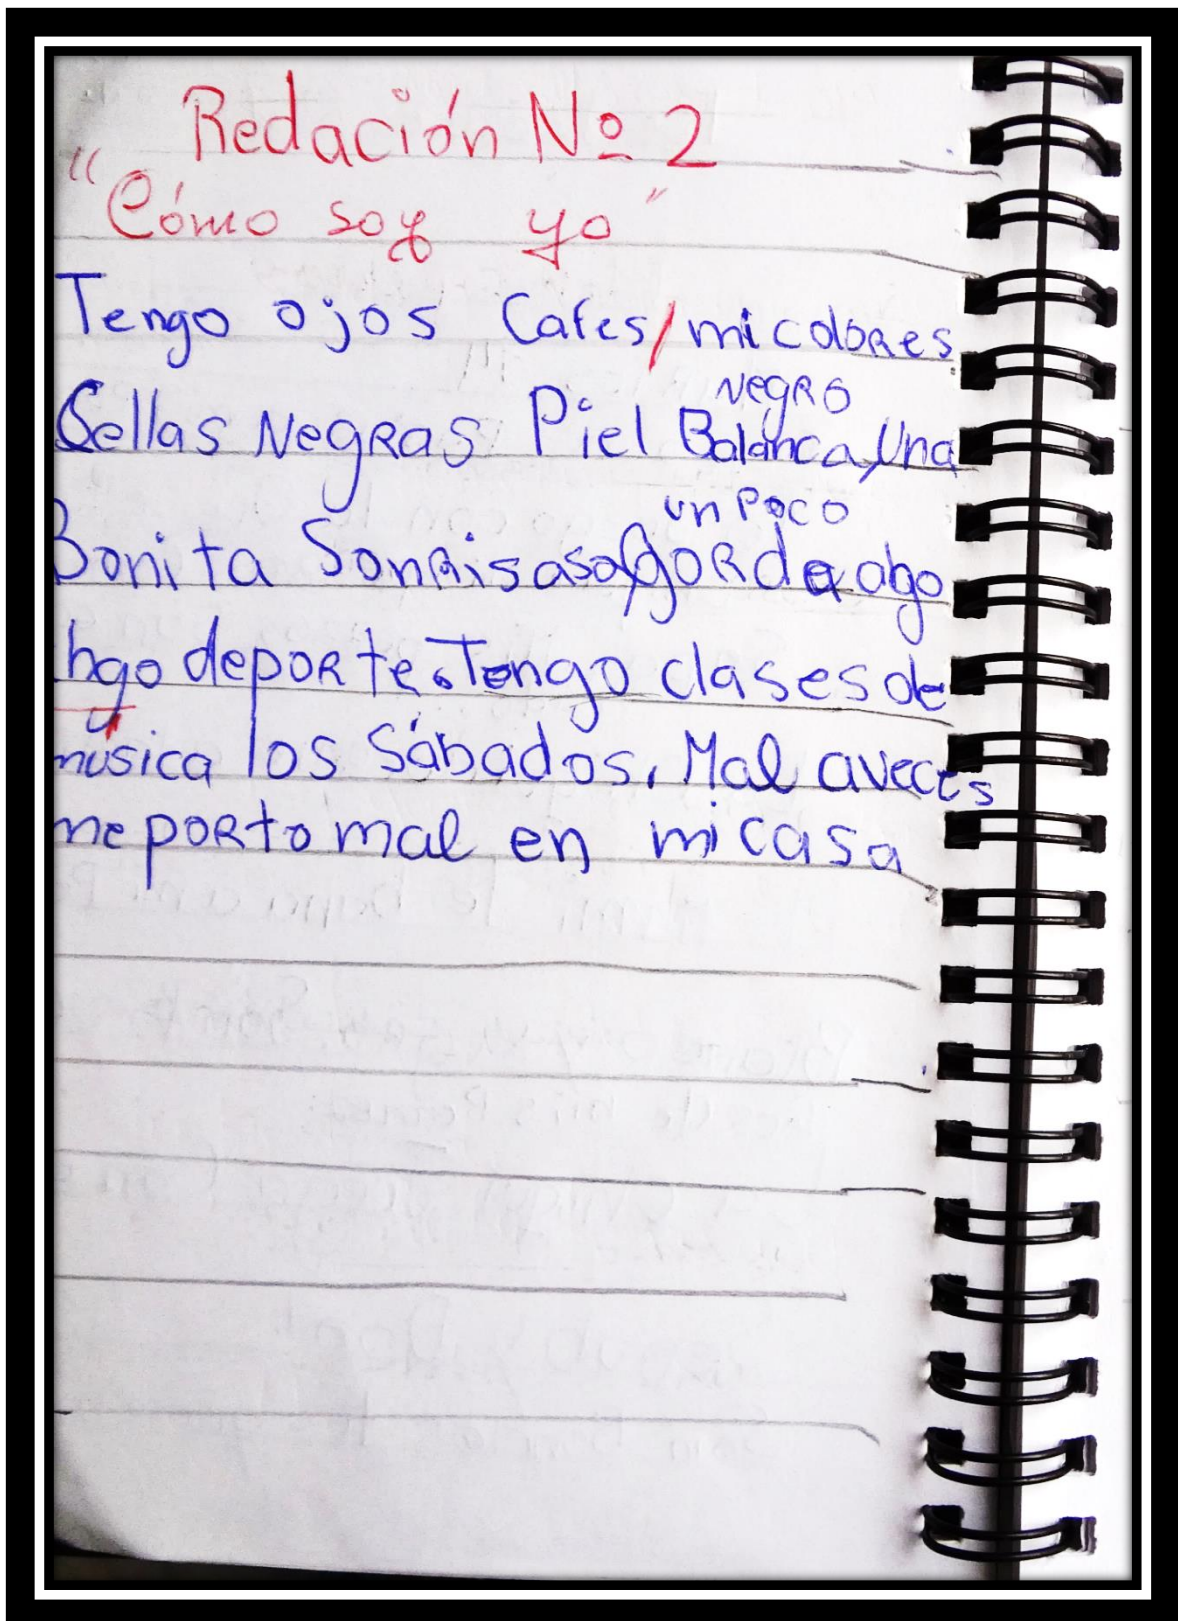 Redación Nº 2
"Cómo soy yo"
Tengo ojos Cafes/mi colores
negro
Cellas Negras Piel Balanca, Una
un poco
Bonita Sonrisa soy gorda ago
hgo deporte. Tengo clases de
música los Sábados. Mal aveces
me porto mal en mi casa